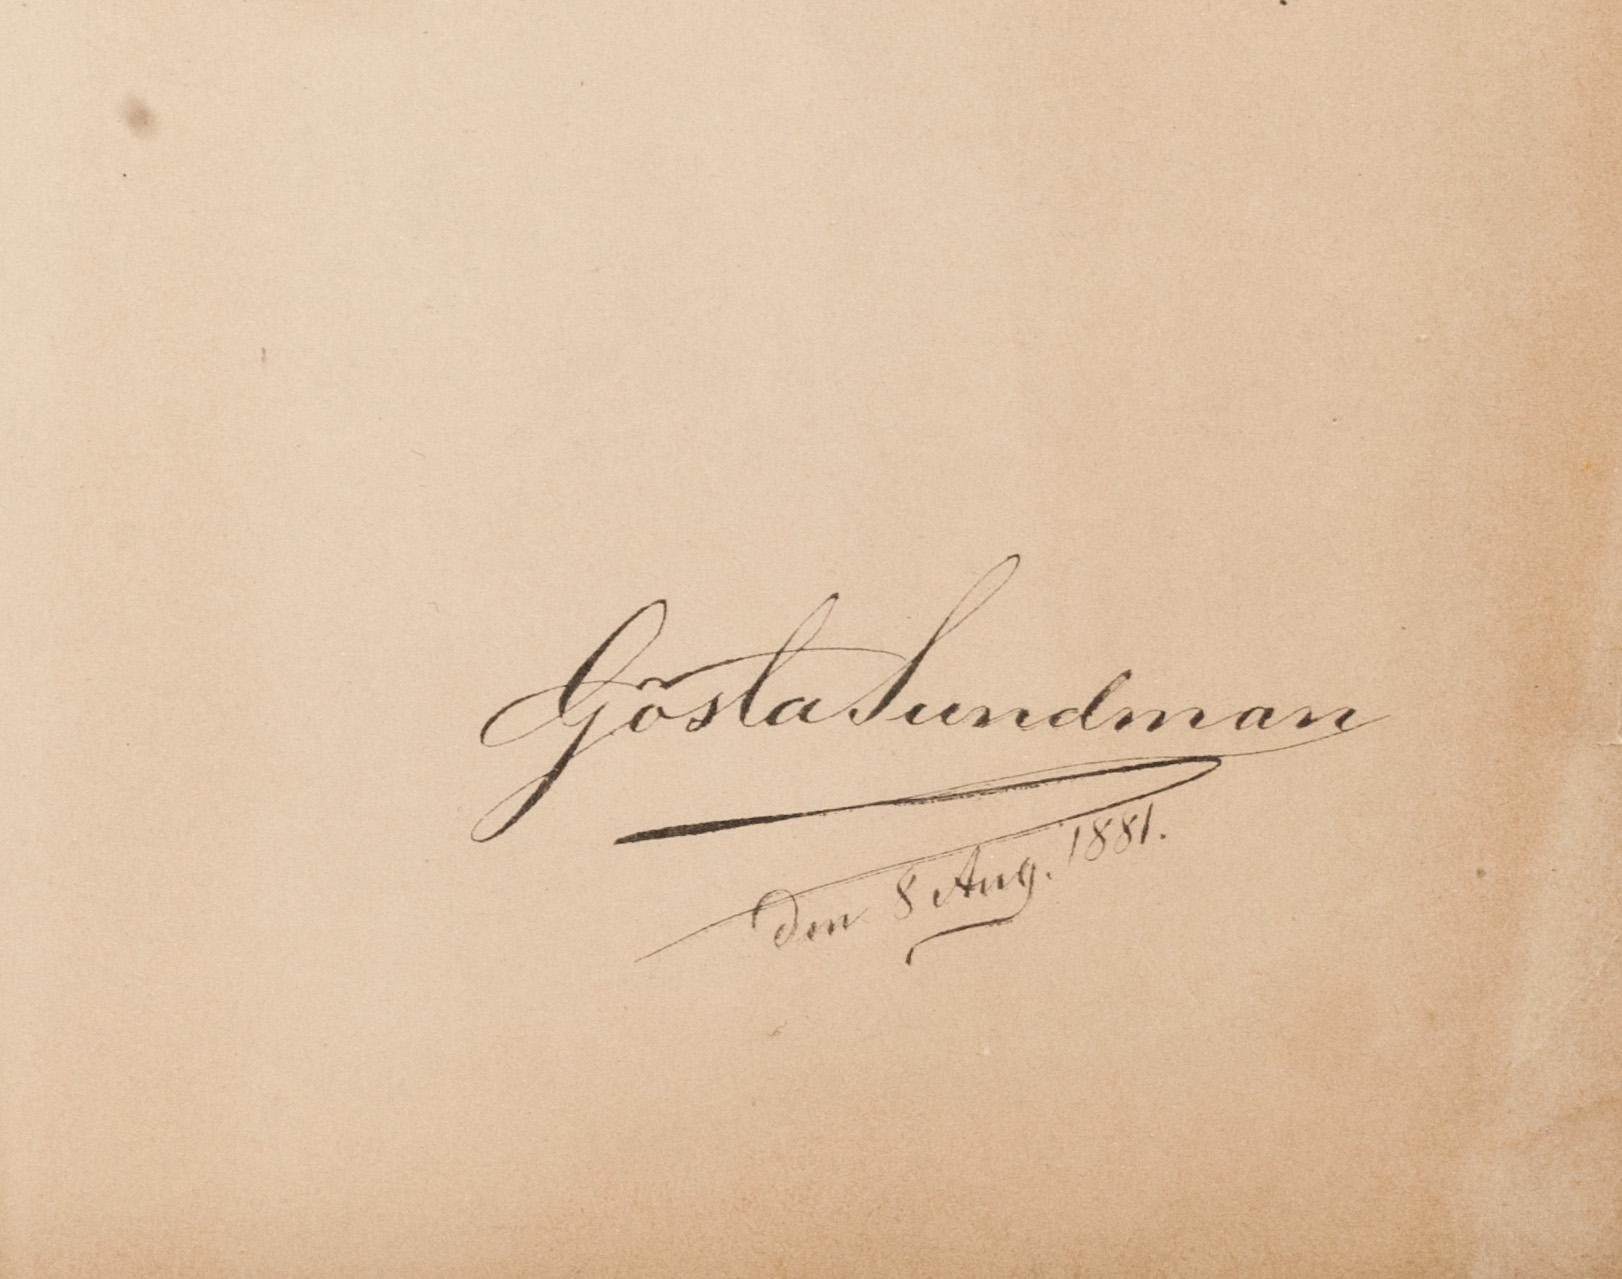 Gösta Sundman
den 8 Aug. 1881.